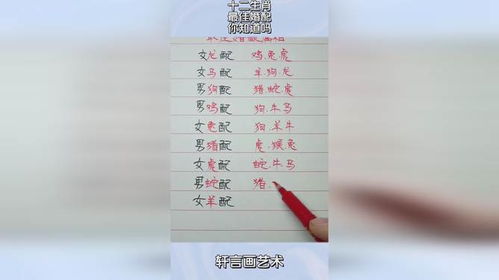 十二生肖
最佳婚配
你知道吗
女龙配 鸡.兔.虎
女马配 羊.狗.龙
男狗配 猪.蛇.虎
男鸡配 狗.牛.马
女兔配 狗.羊.牛
男猪配 虎.猴.兔
女虎配 蛇.牛.马
男蛇配 猪.
女羊配
轩言画艺术